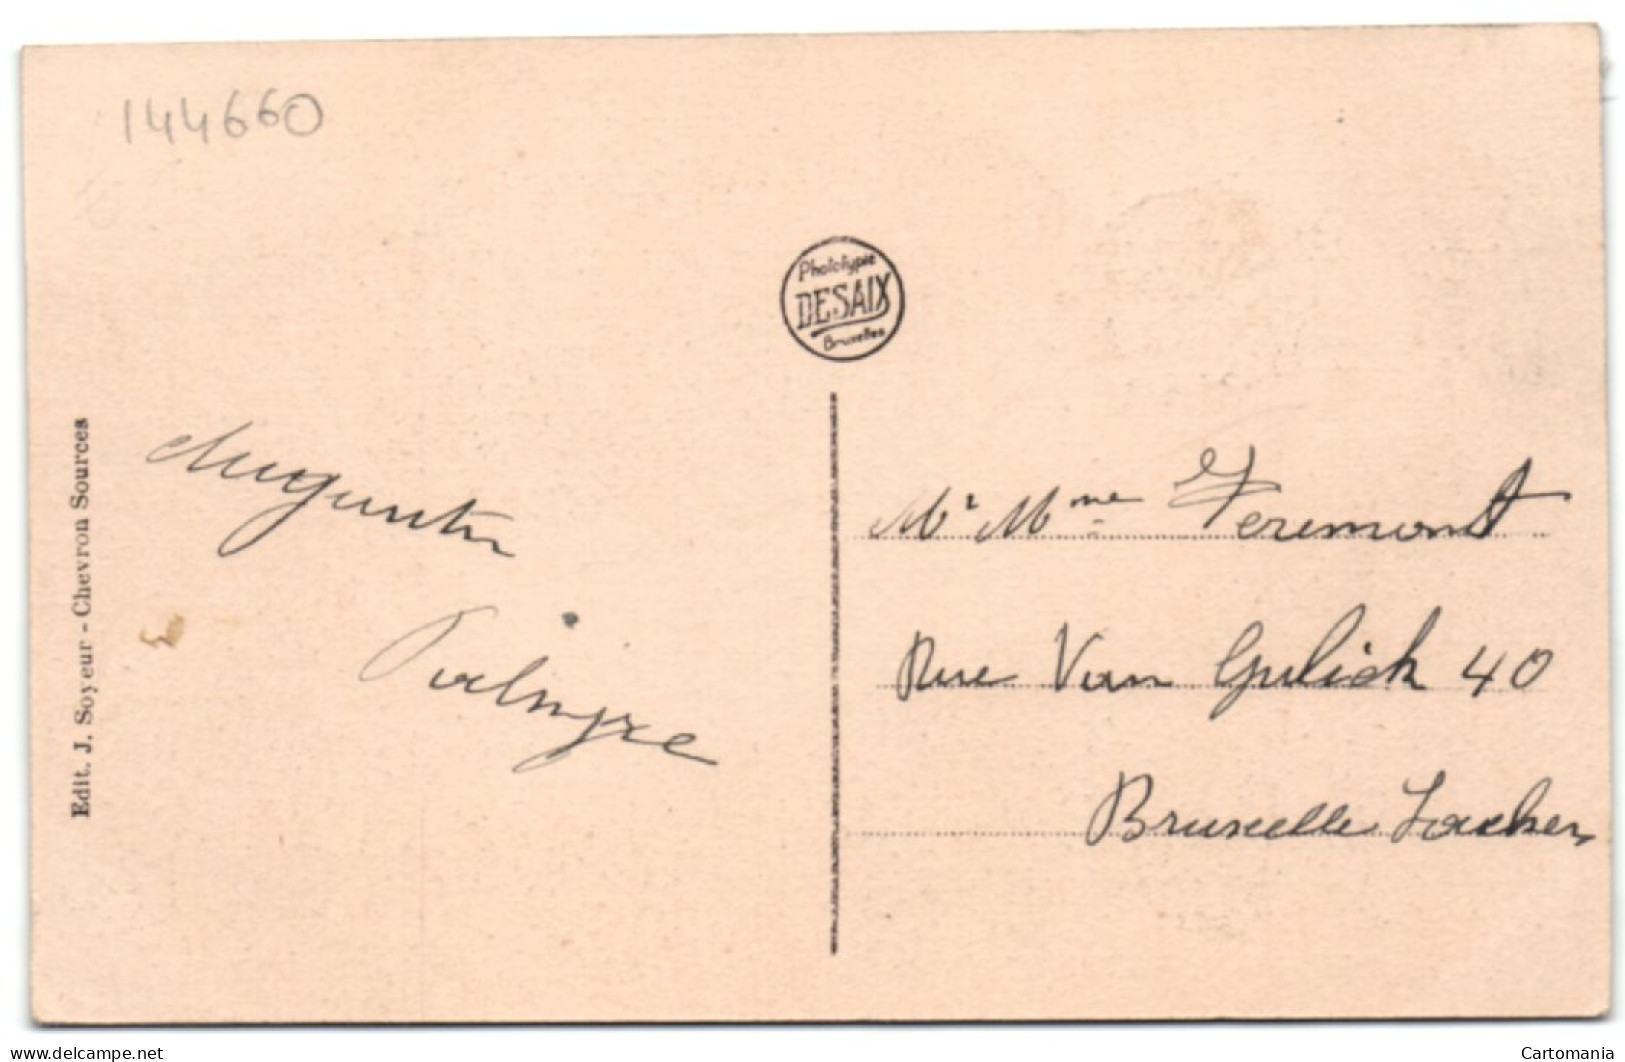 144660
Phototypie
DESAIX
Bruxelles
Edit. J. Soyeur - Chevron Sources
Augustin
Palmyre
Mr Mme Feremonst
Rue Van Gulick 40
Bruxelle Laeken
www.delcampe.net
Cartomania